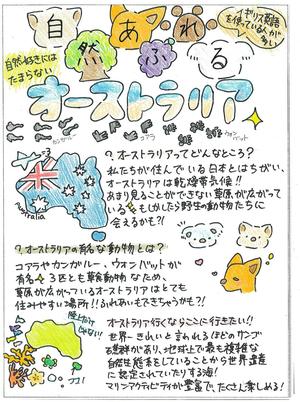 自然あふれる
イギリス英語
を使っている人が
多い
自然好きには
たまらない
オーストラリア
カンガルー
コアラ
ウォンバット
Australia
? オーストラリアってどんなところ?
私たちが住んでいる日本とはちがい、
オーストラリアは乾燥帯気候!!
あまり見ることができない草原が広がって
いるもしかしたら野生の動物たちに
会えるかも?!
? オーストラリアの有名な動物とは?
コアラやカンガルー、ウォンバットが
有名 3匹とも草食動物なため、
草原が広がっているオーストラリアはとても
住みやすい場所!! ふれあいもできちゃうかも?!
陸上だけ
じゃない!!
オーストラリア行くならここに行きたい!!
世界一きれいと言われるほどのサンゴ
礁群があり、地球上で最も複雑な
自然生態系をしていることから世界遺産
に認定されていたりする海!
マリンアクティビティが豊富で、たくさん楽しめる!